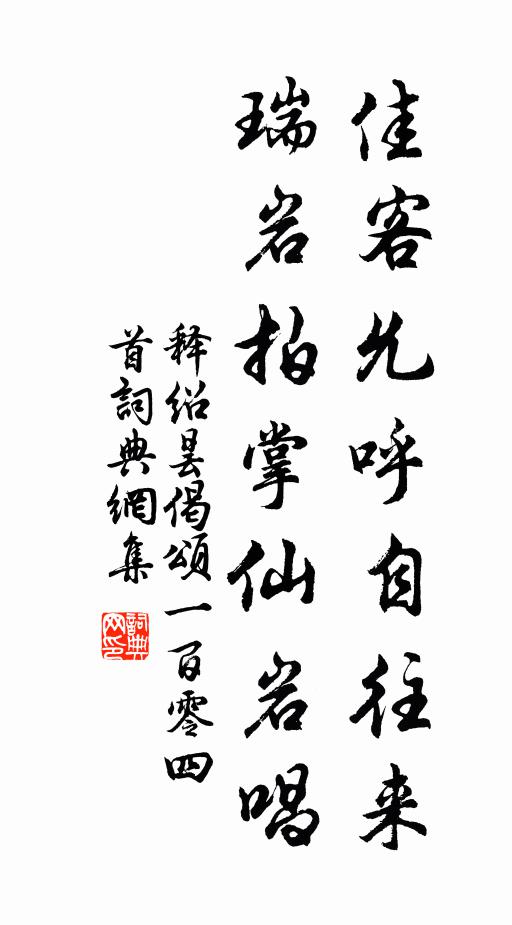 佳客允呼自往来
瑞岩拍掌仙岩唱
释绍昙偈頌一百零四
首詞典網集
詞典网印